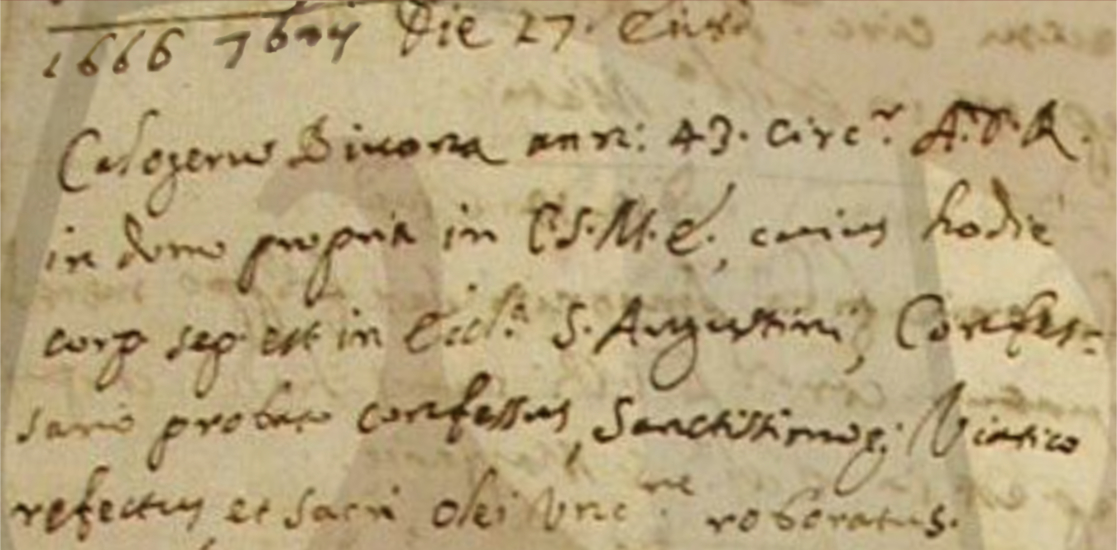 1666 7bris Die 27. Eiusd
Calogerus Bivona ann: 43. circ.r A.D.R.
in domo propria in C.S.M.E., cuius hodie
corp sep est in Eccl.a S. Augustini, Confess=
sario probato confessus, Sanctissimoq; Viatico
refectus et sacri olei Unc.ne roboratus.